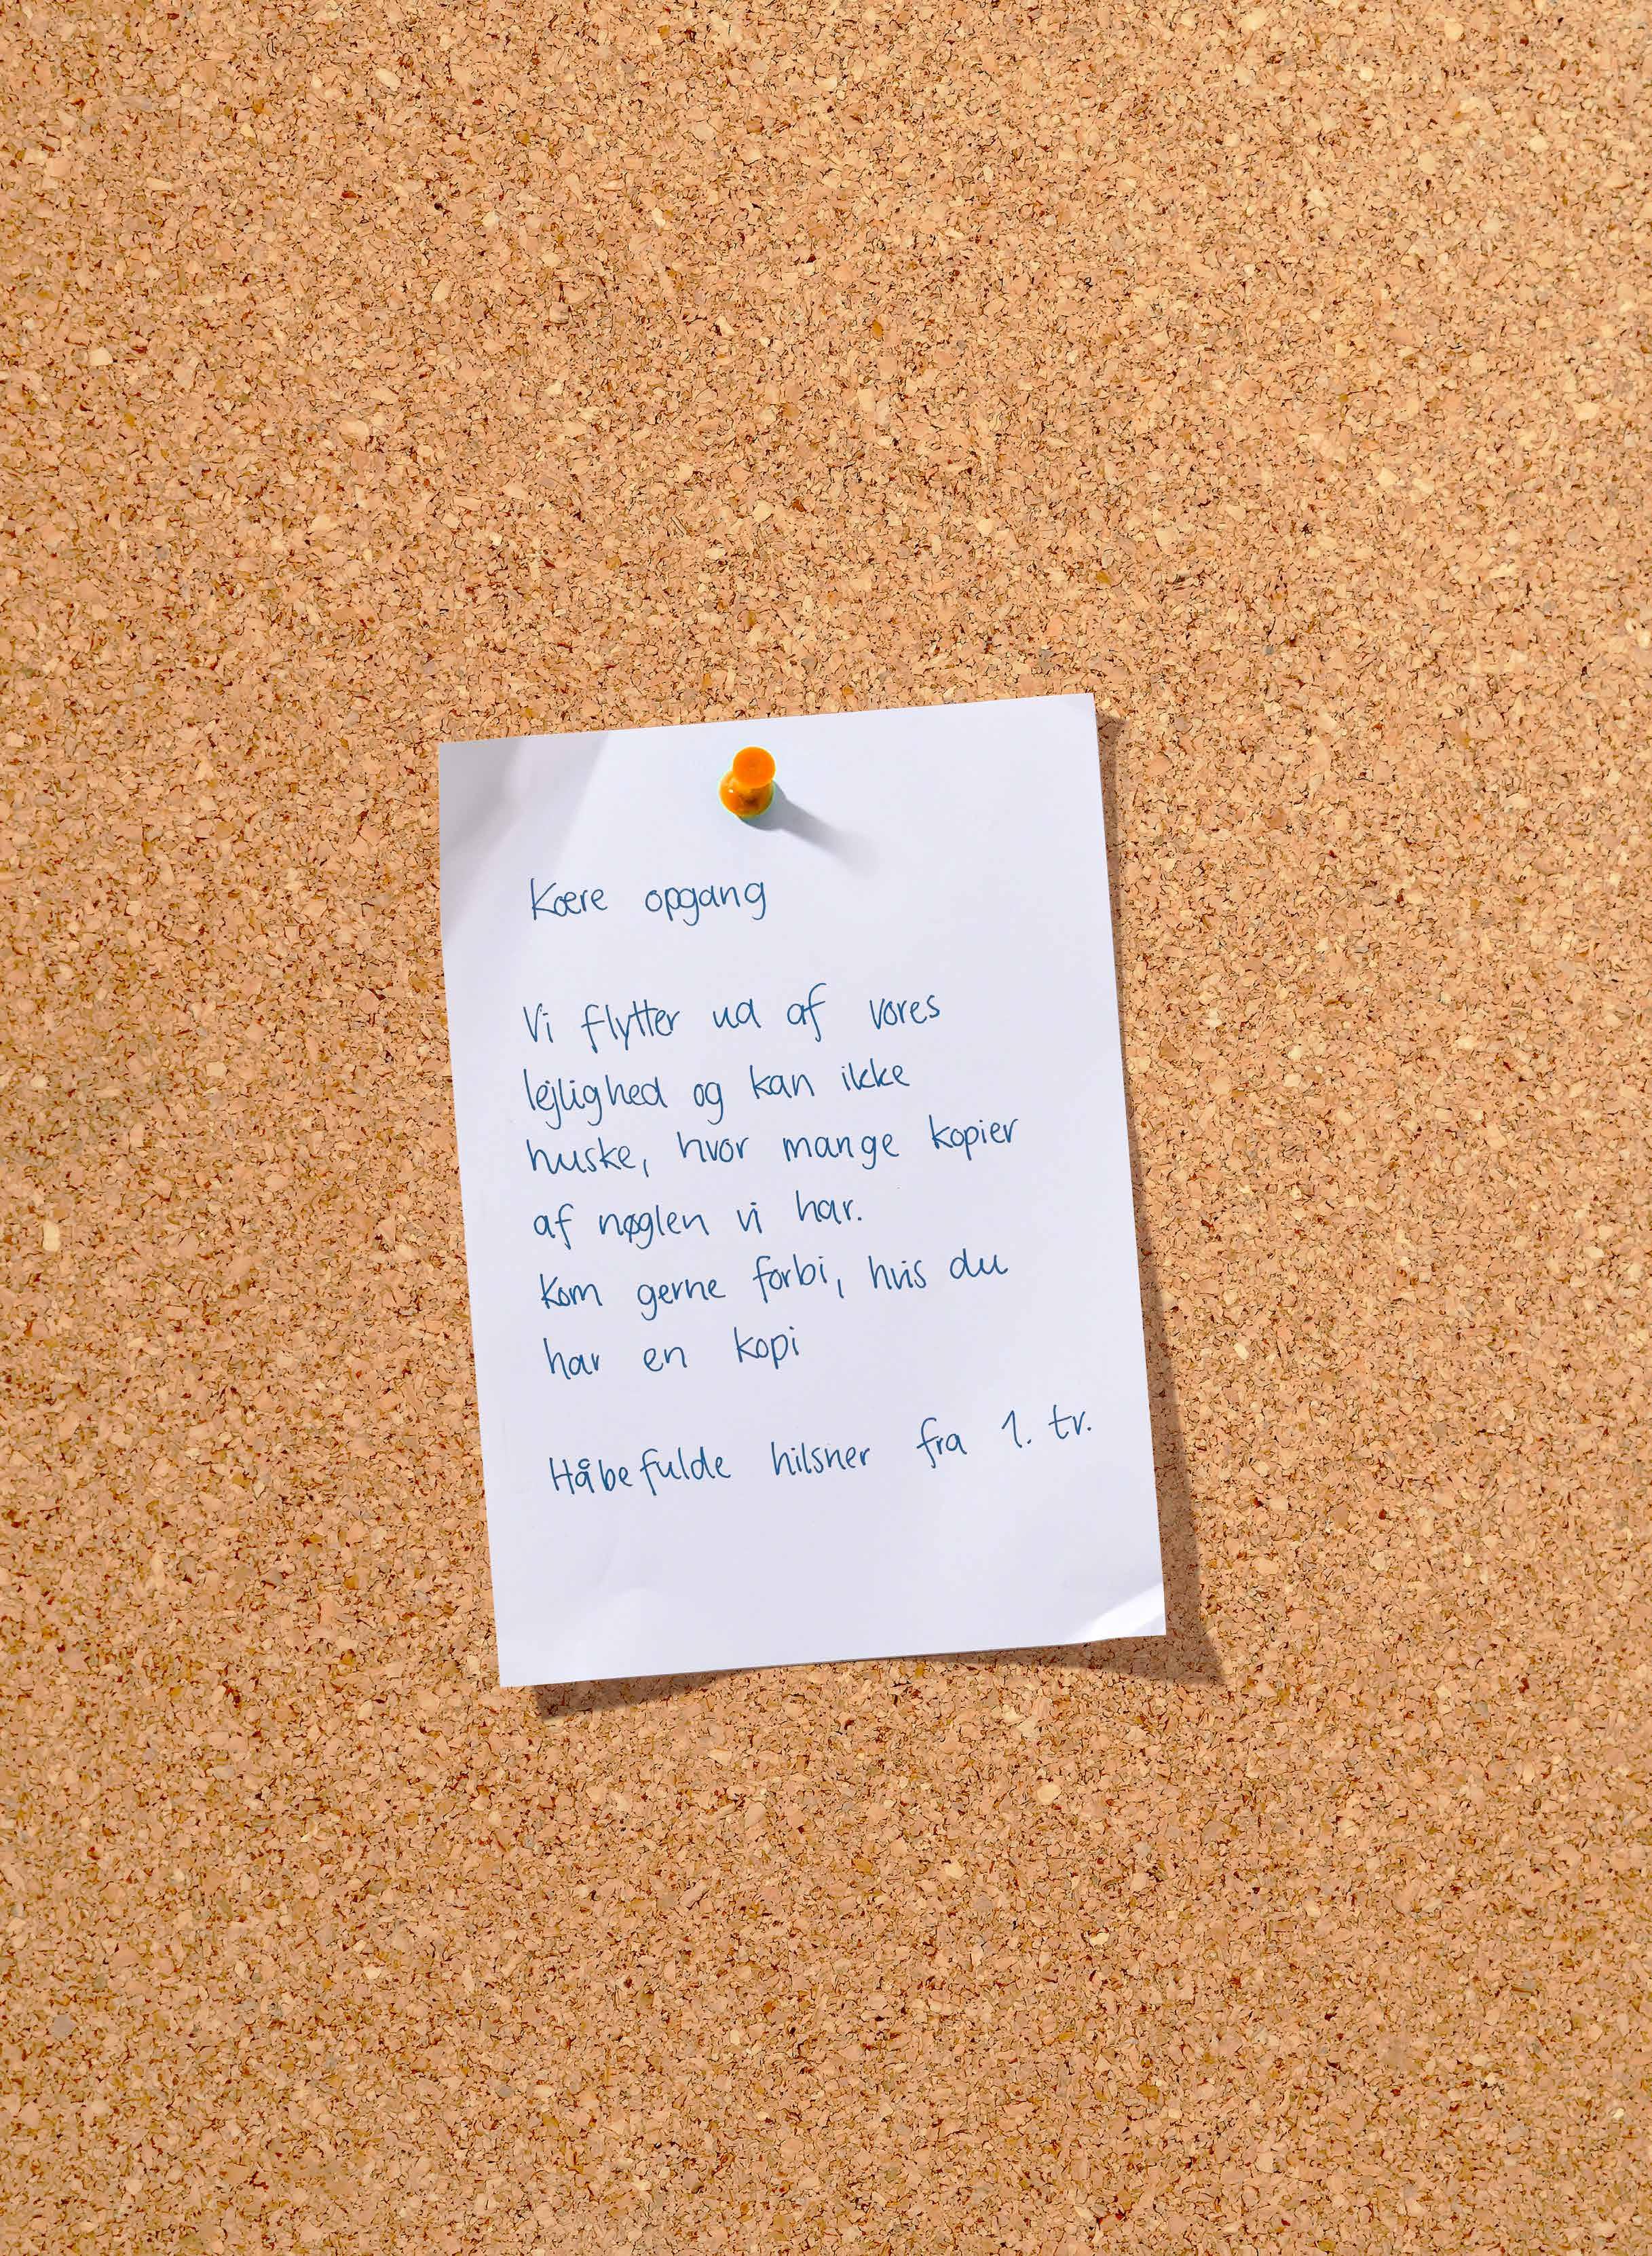 Kære opgang
Vi flytter ud af vores
lejlighed og kan ikke
huske, hvor mange kopier
af nøglen vi har.
Kom gerne forbi, hvis du
har en kopi
Håbefulde hilsner fra 1. tv.